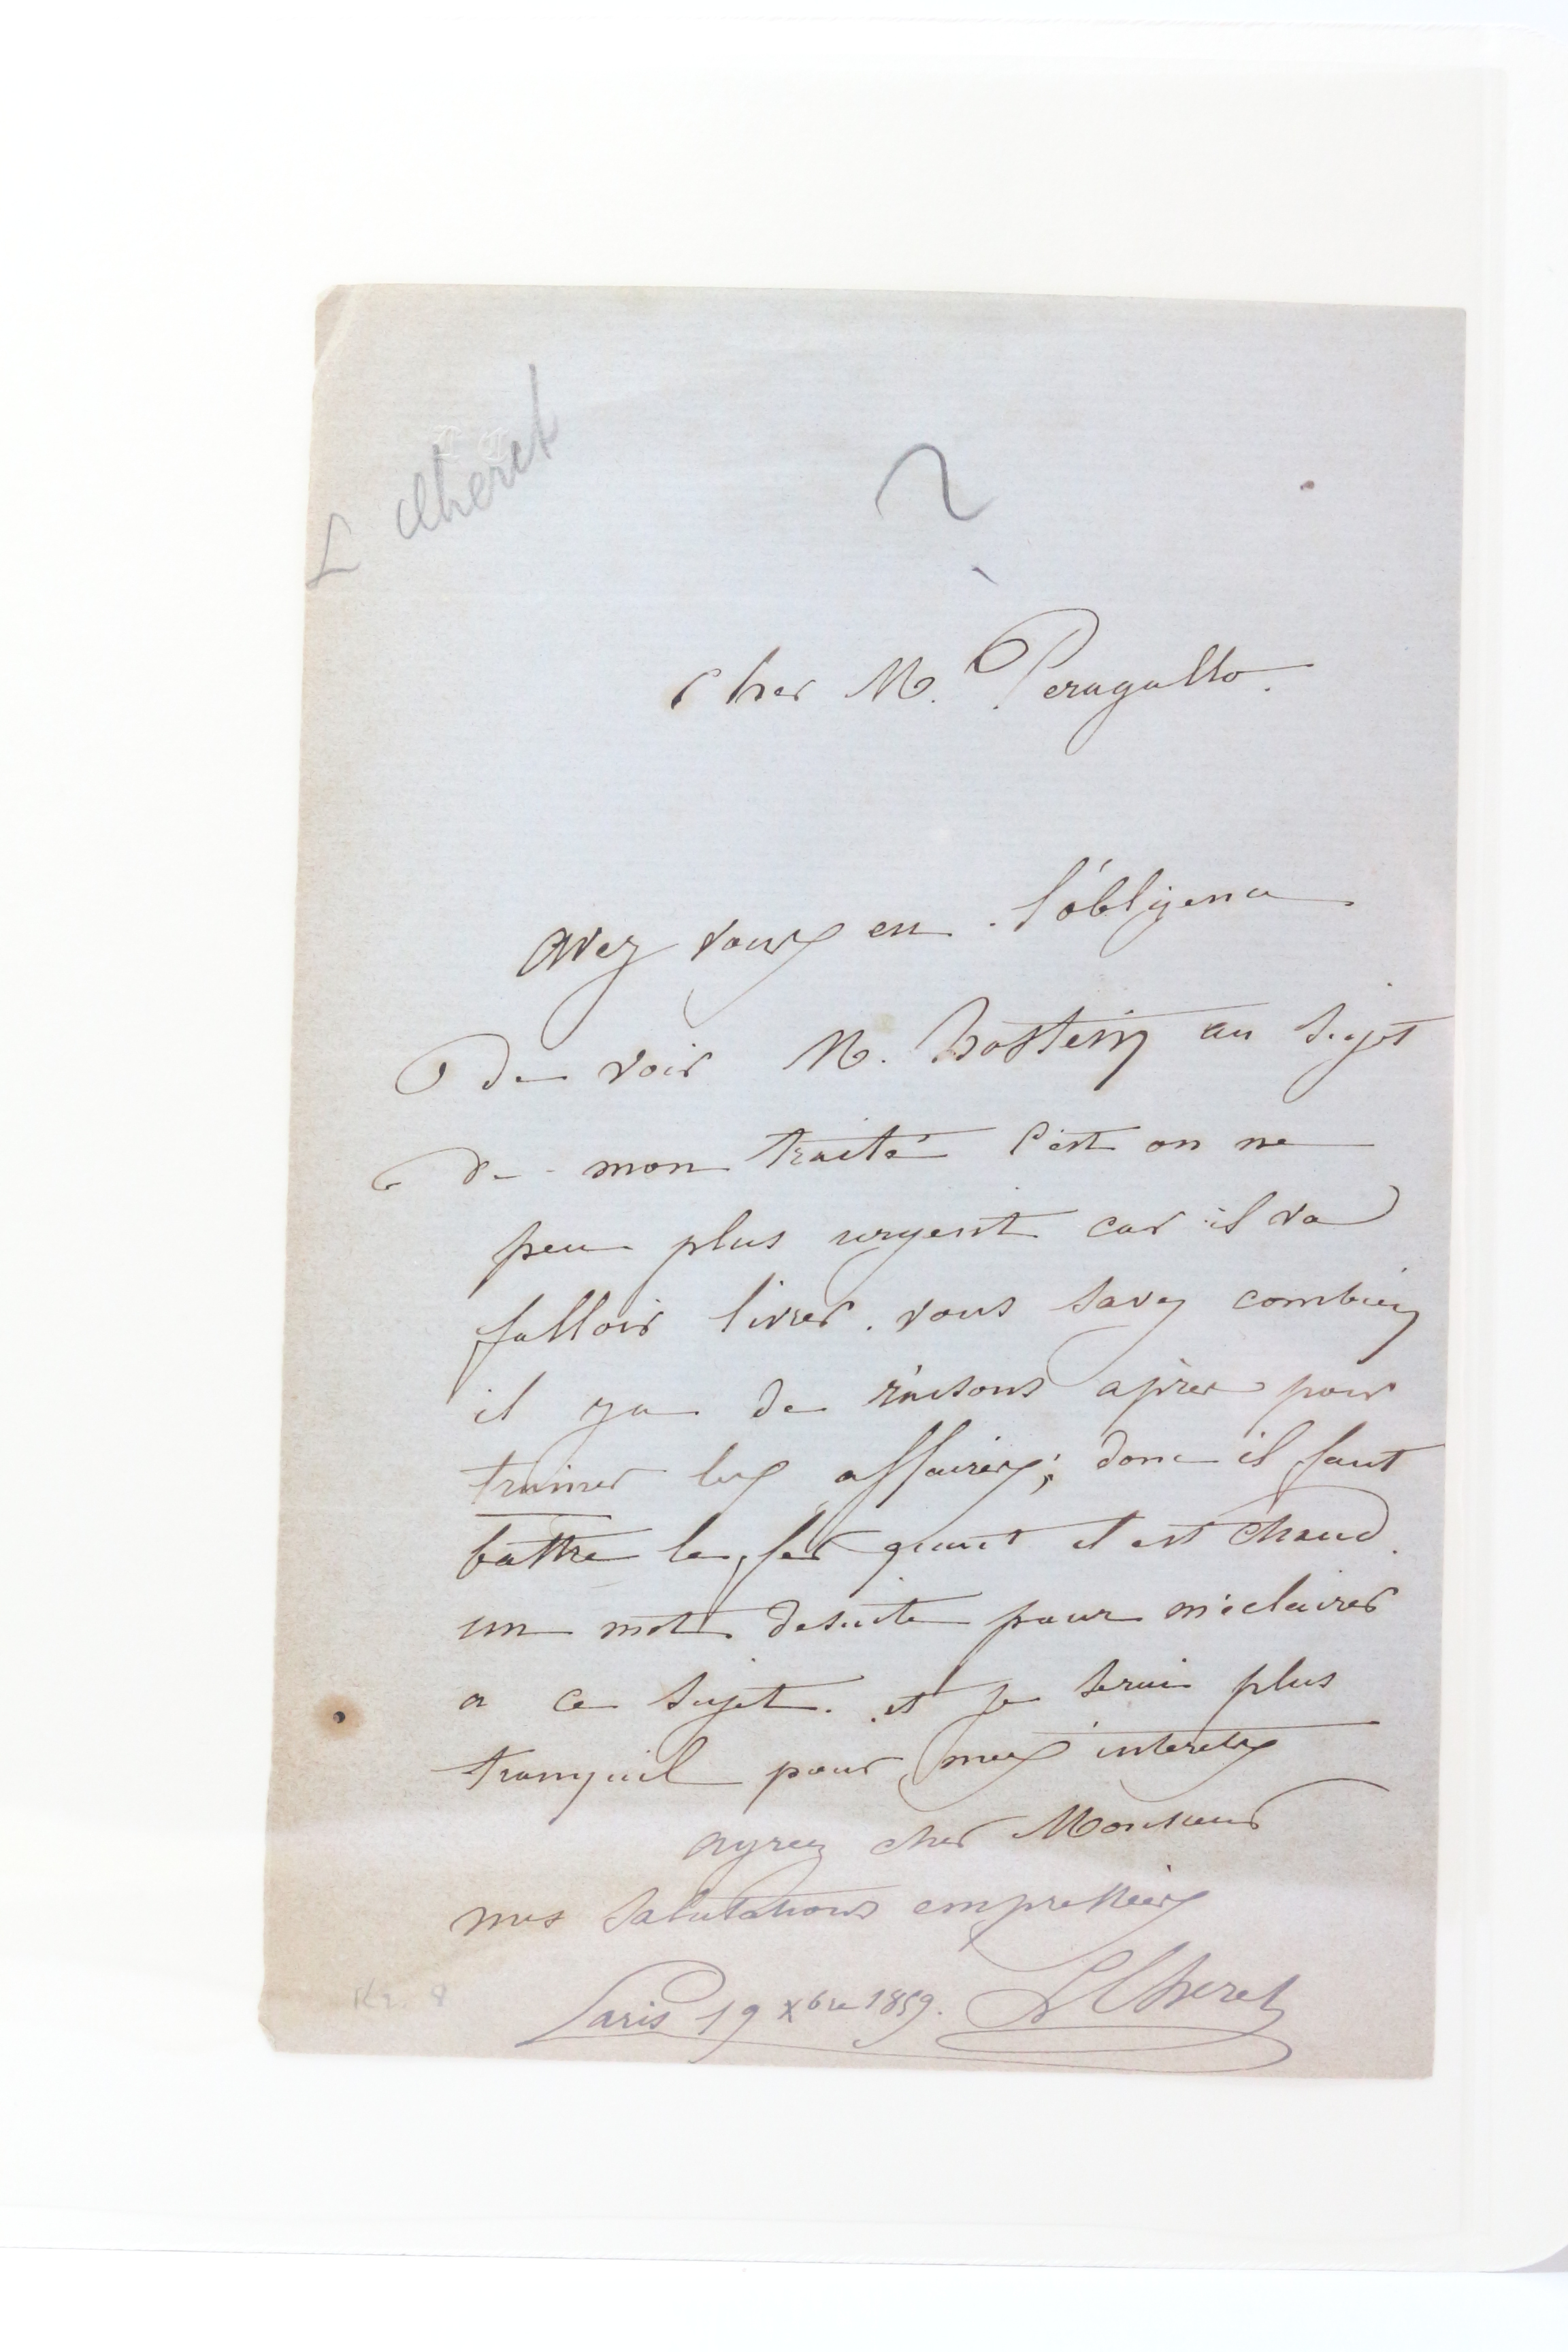 L Cheret
?
Cher M. Peragallo.
Avez vous eu l'obligence
de voir M. hostein au sujet
de mon traité C'est on ne
peu plus urgent car il va
falloir livrer. vous savez combien
il ya de raisons apres pour
trainer les affaires; donc il faut
battre le fer quant il est chaud.
un mot desuite pour m'eclairer
a ce sujet. et je serai plus
tranquil pour mes interets
agreez cher Monsieur
mes salutations empressées
Paris 19 Xbre 1859. L Cheret